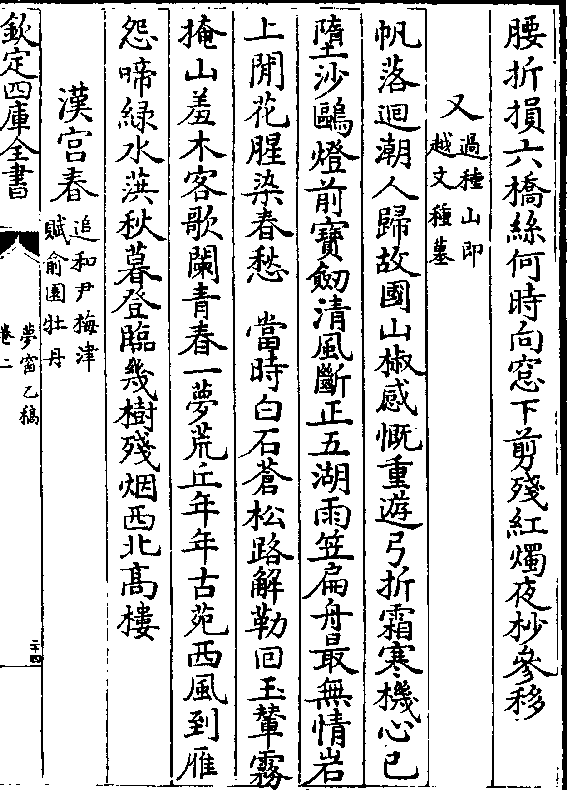 腰折損六橋絲何時向窓下剪殘紅燭夜杪參移
又過種山即
越文種墓
帆落迴潮人歸故國山椒感慨重遊弓折霜寒機心已
墮沙鷗燈前寶劒清風斷正五湖雨笠扁舟最無情岩
上閒花腥染春愁 當時白石蒼松路解勒回玉輦霧
掩山羞木客歌闌青春一夢荒丘年年古苑西風到雁
怨啼緑水葓秋暮登臨幾樹殘烟西北髙樓
漢宫春追和尹梅津
賦俞園牡丹
欽定四庫全書
夢窗乙稿
卷二
二十四